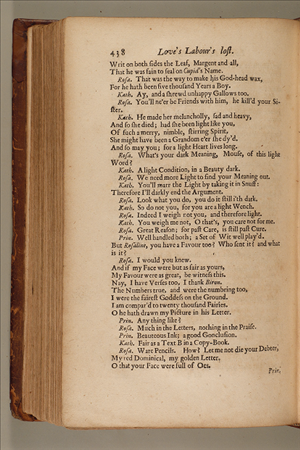 438 Love's Labour's lost.
Writ on both sides the Leaf, Margent and all,
That he was fain to seal on Cupid's Name.
Rosa. That was the way to make his God-head wax,
For he hath been five thousand Years a Boy.
Kath. Ay, and a shrewd unhappy Gallows too.
Rosa. You'll ne'er be Friends with him, he kill'd your Si-
ster.
Kath. He made her melancholly, sad and heavy,
And so she died; had she been light like you,
Of such a merry, nimble, stirring Spirit,
She might have been a Grandam e'er she dy'd.
And so may you; for a light Heart lives long.
Rosa. What's your dark Meaning, Mouse, of this light
Word?
Kath. A light Condition, in a Beauty dark.
Rosa. We need more Light to find your Meaning out.
Kath. You'll marr the Light by taking it in Snuff:
Therefore I'll darkly end the Argument.
Rosa. Look what you do, you do it still i'th dark.
Kath. So do not you, for you are a light Wench.
Rosa. Indeed I weigh not you, and therefore light.
Kath. You weigh me not, O that's, you care not for me.
Rosa. Great Reason; for past Care, is still past Cure.
Prin. Well bandied both; a Set of Wit well play'd.
But Rosaline, you have a Favour too? Who sent it? and what
is it?
Rosa. I would you knew.
And if my Face were but as fair as yours,
My Favour were as great, be witness this.
Nay, I have Verses too, I thank Biron.
The Numbers true, and were the numbring too,
I were the fairest Goddess on the Ground.
I am compar'd to twenty thousand Fairies.
O he hath drawn my Picture in his Letter.
Prin. Any thing like?
Rosa. Much in the Letters, nothing in the Praise.
Prin. Beauteous Ink; a good Conclusion.
Kath. Fair as a Text B in a Copy-Book.
Rosa. Ware Pencils. How? Let me not die your Debter,
My red Dominical, my golden Letter.
O that your Face were full of Oes.
Prin.